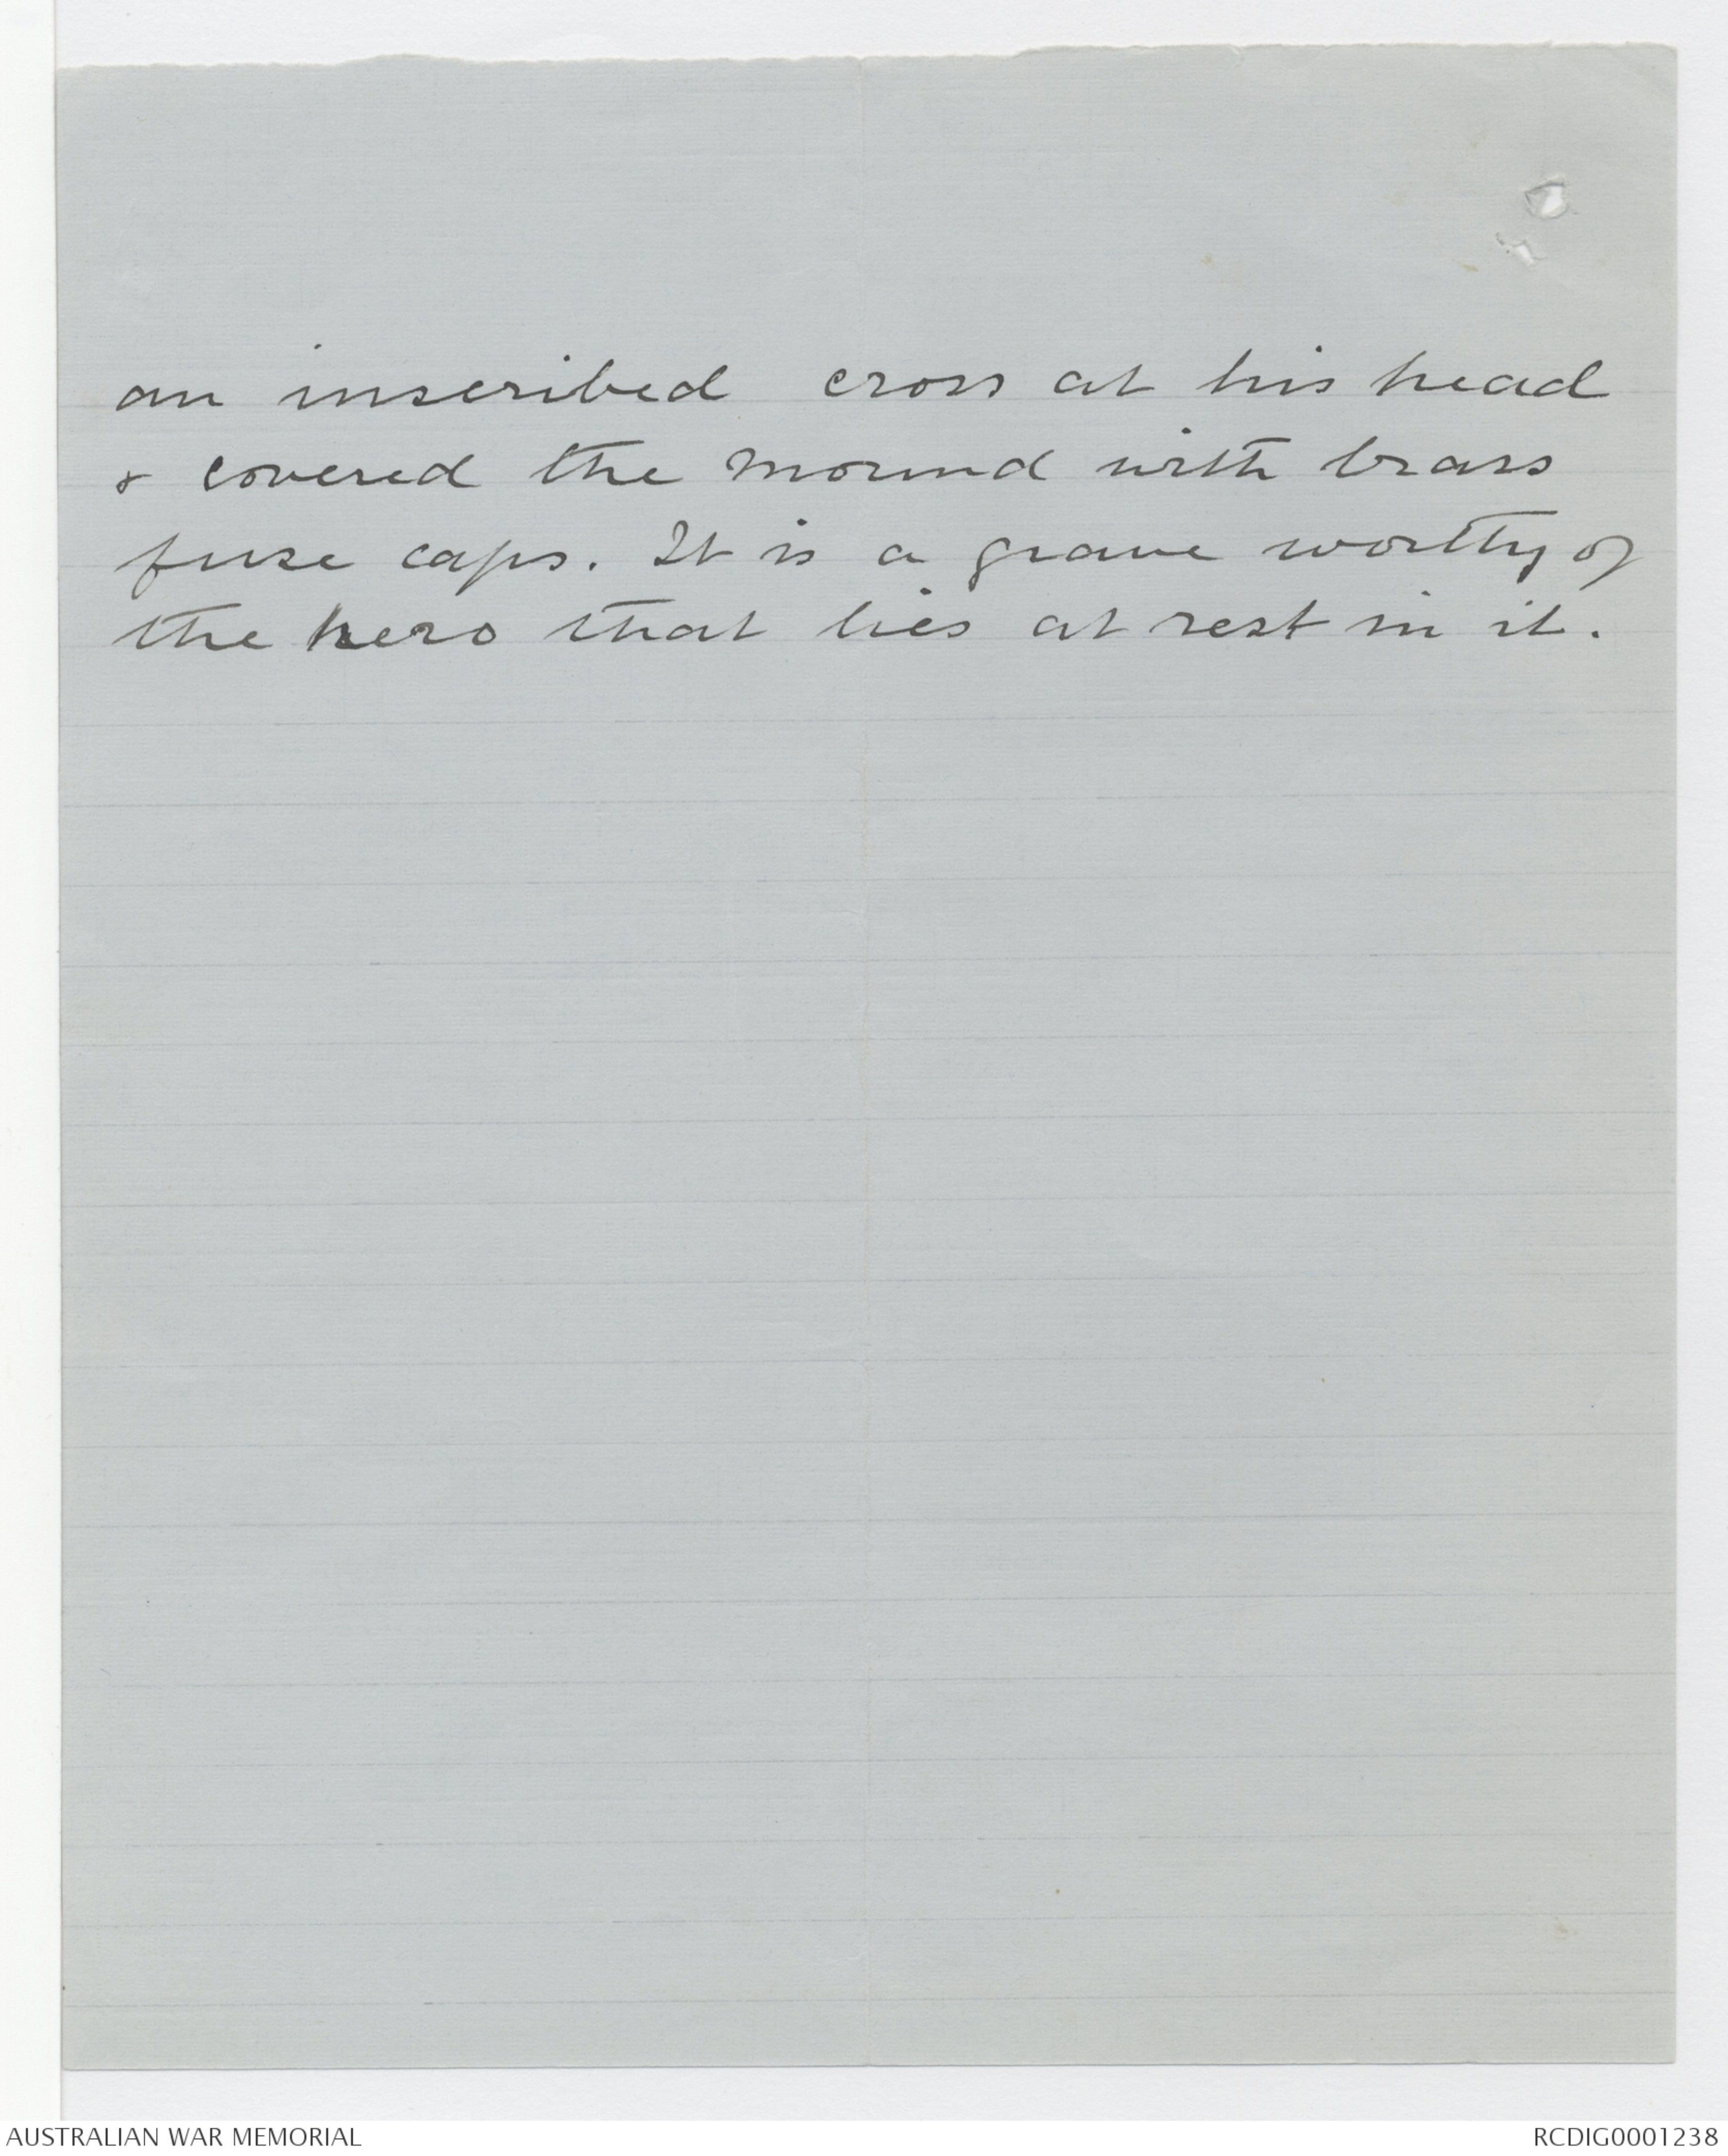 an inscribed cross at his head
& covered the mound with brass
fuse caps. It is a grave worthy of
the hero that lies at rest in it.
AUSTRALIAN WAR MEMORIAL
RCDIG0001238